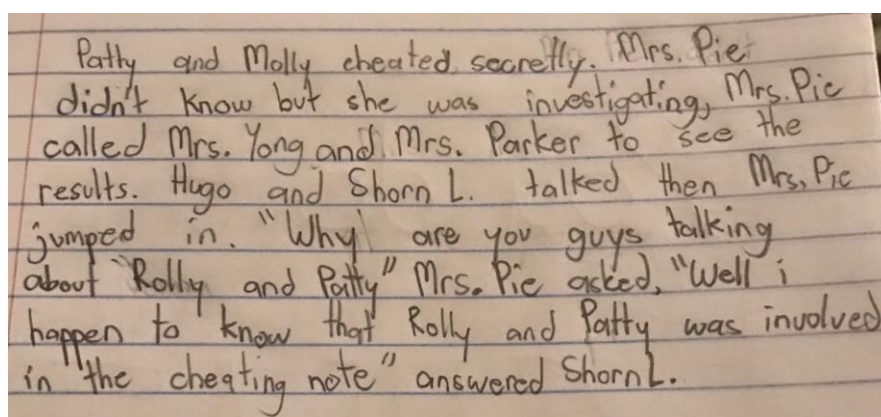 Patty and Molly cheated secretly. Mrs. Pie
didn't know but she was investigating, Mrs. Pie
called Mrs. Yong and Mrs. Parker to see the
results. Hugo and Shorn L. talked then Mrs, Pie
jumped in. "Why are you guys talking
about "Rolly and Patty" Mrs. Pie asked, "Well i
happen to know that Rolly and Patty was involved
in "the cheating note" answered Shorn L.